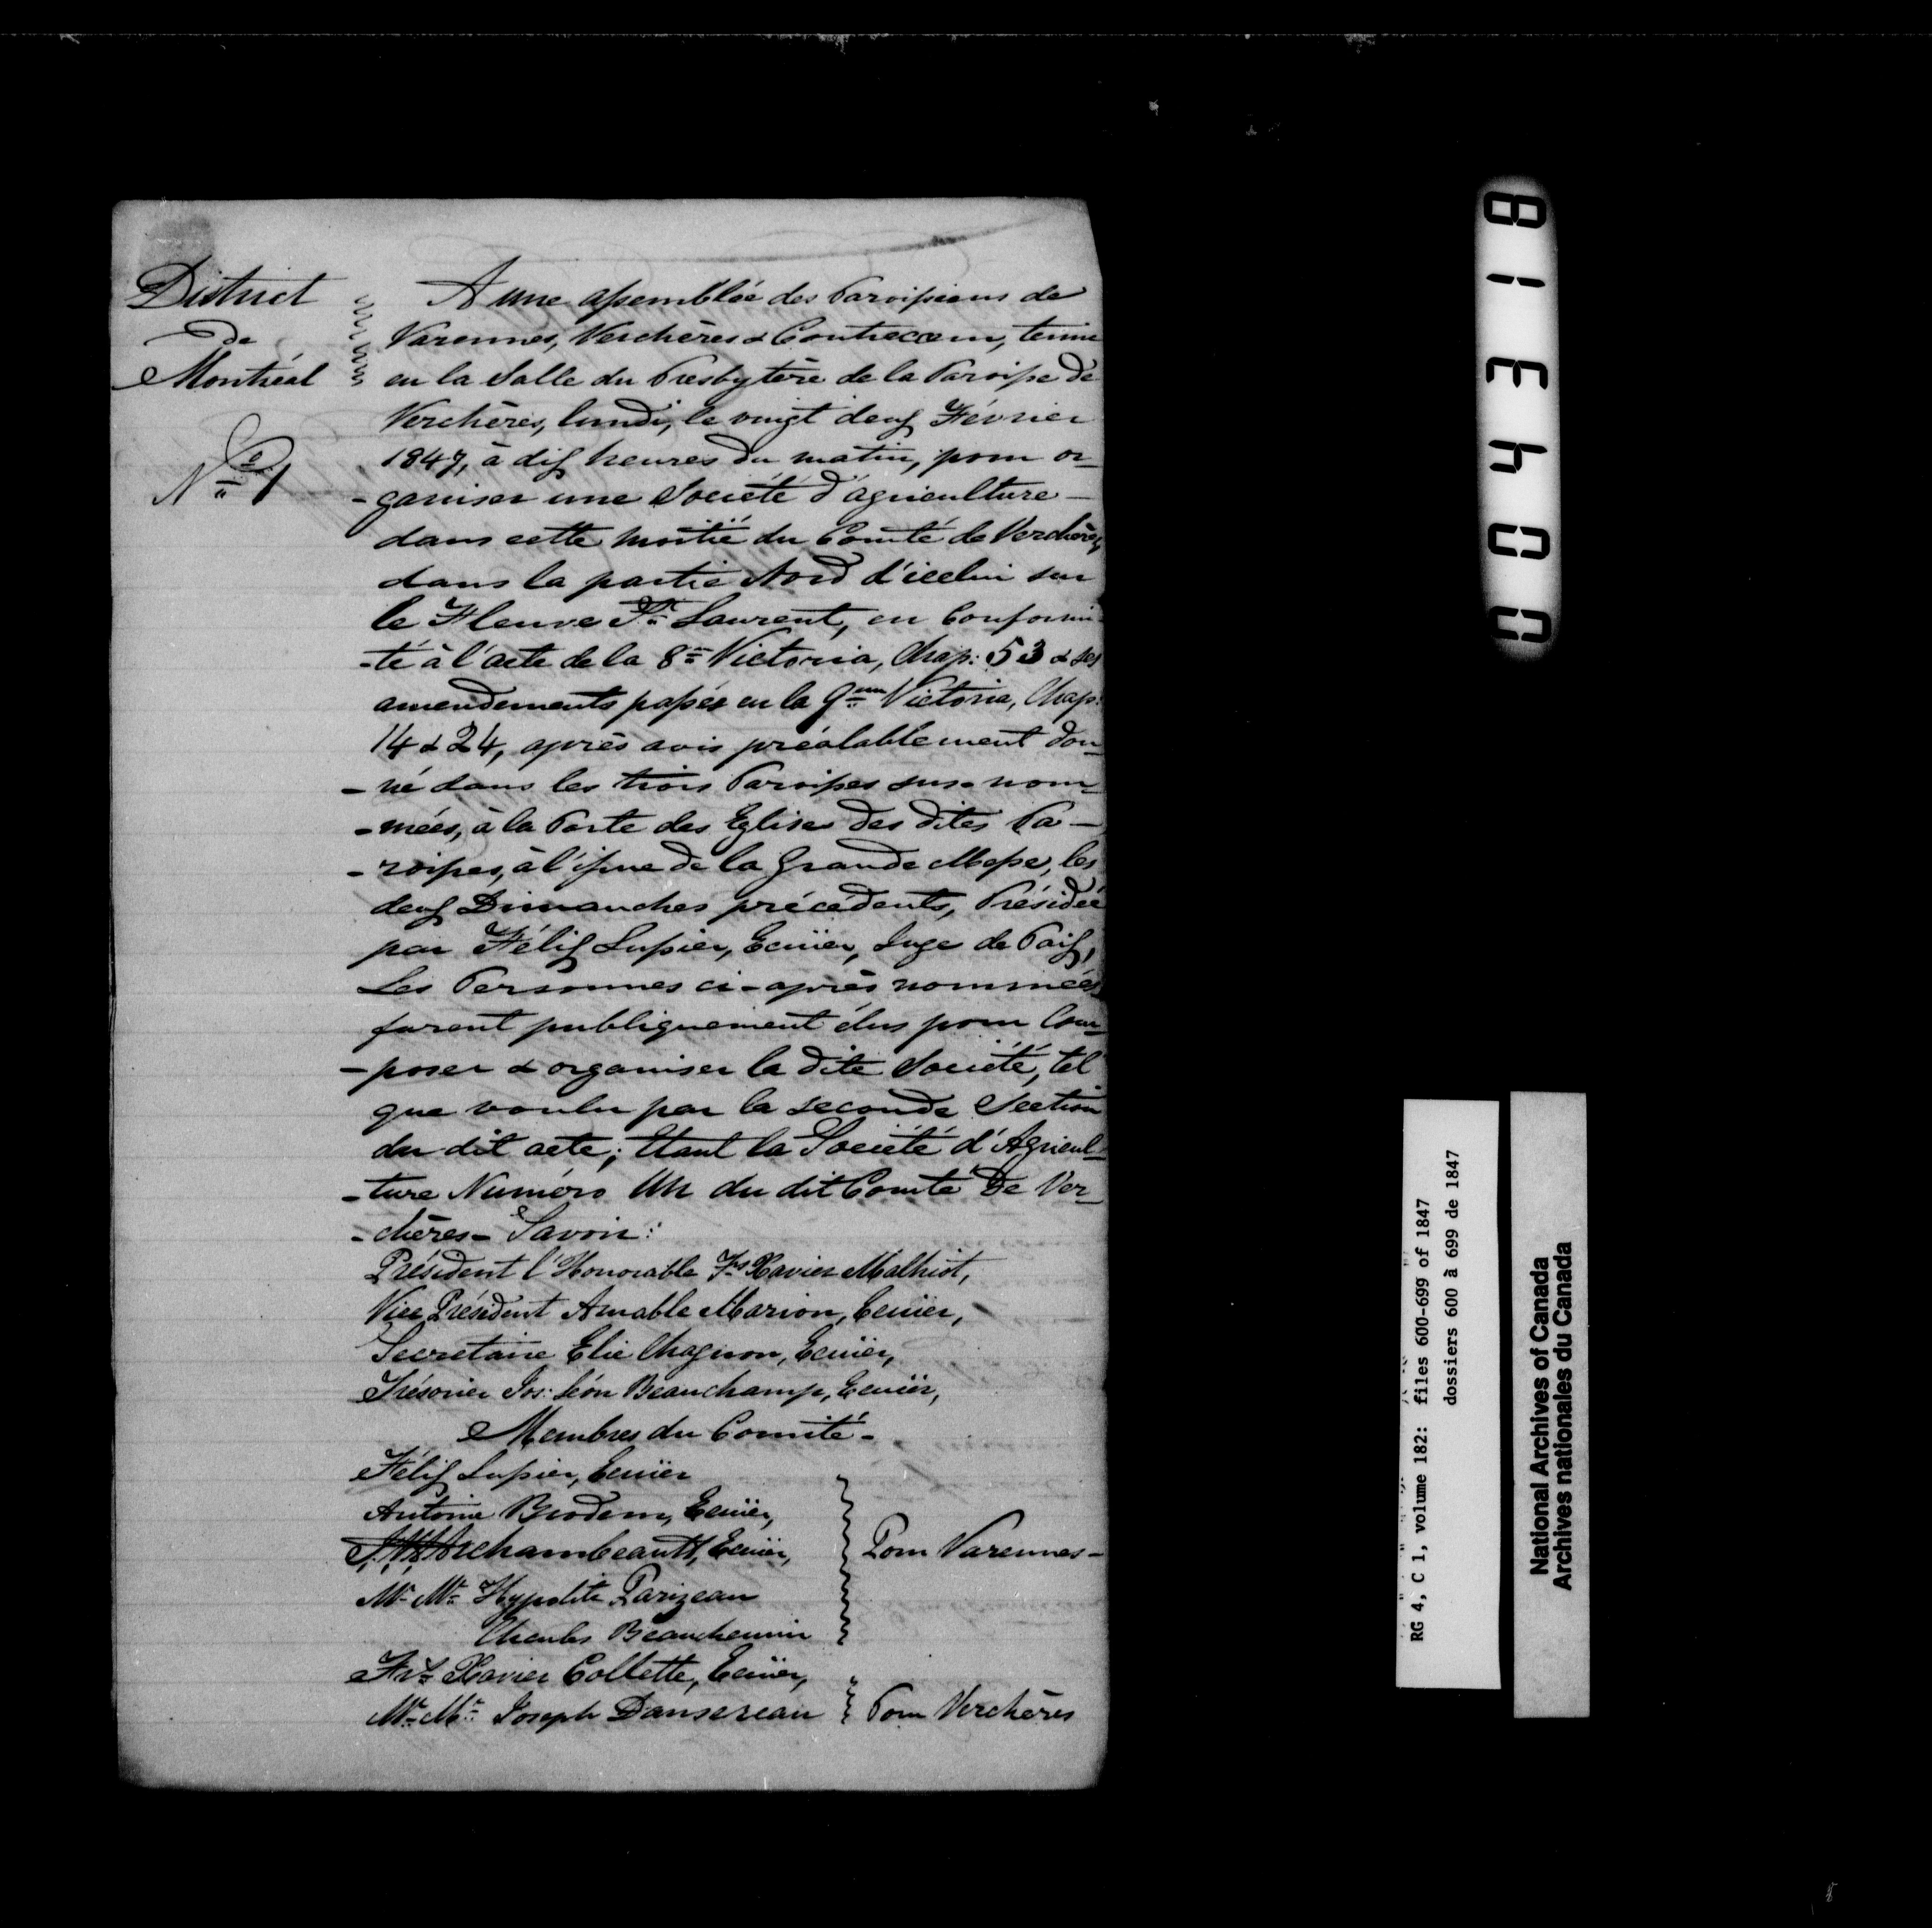 District
de
Montréal
No. 1
A une assemblée des Paroissiens de
Varennes, Verchères & Contrecoeur, tenue
en la Salle du Presbytère de la Paroisse de
Verchères, lundi, le vingt deux Février
1847, à dix heures du matin, pour or-
-ganiser une Société d'agriculture -
dans cette moitié du Comté de Verchères,
dans la partie Nord d'icelui sur
le Fleuve St. Laurent, en Conformi-
-té à l'acte de la 8e Victoria, Chap: 53 & ses
amendements passés en la 9eme Victoria, Chap:
14 & 24, après avis préalablement don-
-né dans les trois Paroisses sus-nom-
-mées, à la Porte des Eglises des dites Pa-
-roisses, à l'issue de la Grande Messe, les
deux Dimanches précédents, Présidée
par Félix Lussier, Ecuïer, Juge de Paix,
Les Personnes ci-après nommées
furent publiquement élus pour Com-
-poser & organiser la dite Société, tel
que voulu par la seconde Section
du dit acte; Etant la Société d'Agricul-
-ture Numéro Un du dit Comté De Ver-
-chères - Savoir:
Président l'Honorable Frs Xavier Malhiot,
Vice Président Amable Marion, Ecuïer,
Secretaire Elie Chagnon, Ecuïer,
Trésorier Jos: Léon Beauchamp, Ecuïer,
Membres du Comité -
Félix Lussier, Ecuïer
Antoine Brodeur, Ecuïer,
Archambeault, Ecuïer,
Mr. Mr. Hypolite Parizeau
Charles Beauchemin
Pour Varennes -
Frs. Xavier Collette, Ecuïer,
Mr. Mr. Joseph Dansereau
Pour Verchères
043318
RG 4, C 1, volume 182: files 600-699 of 1847
dossiers 600 à 699 de 1847
National Archives of Canada
Archives nationales du Canada